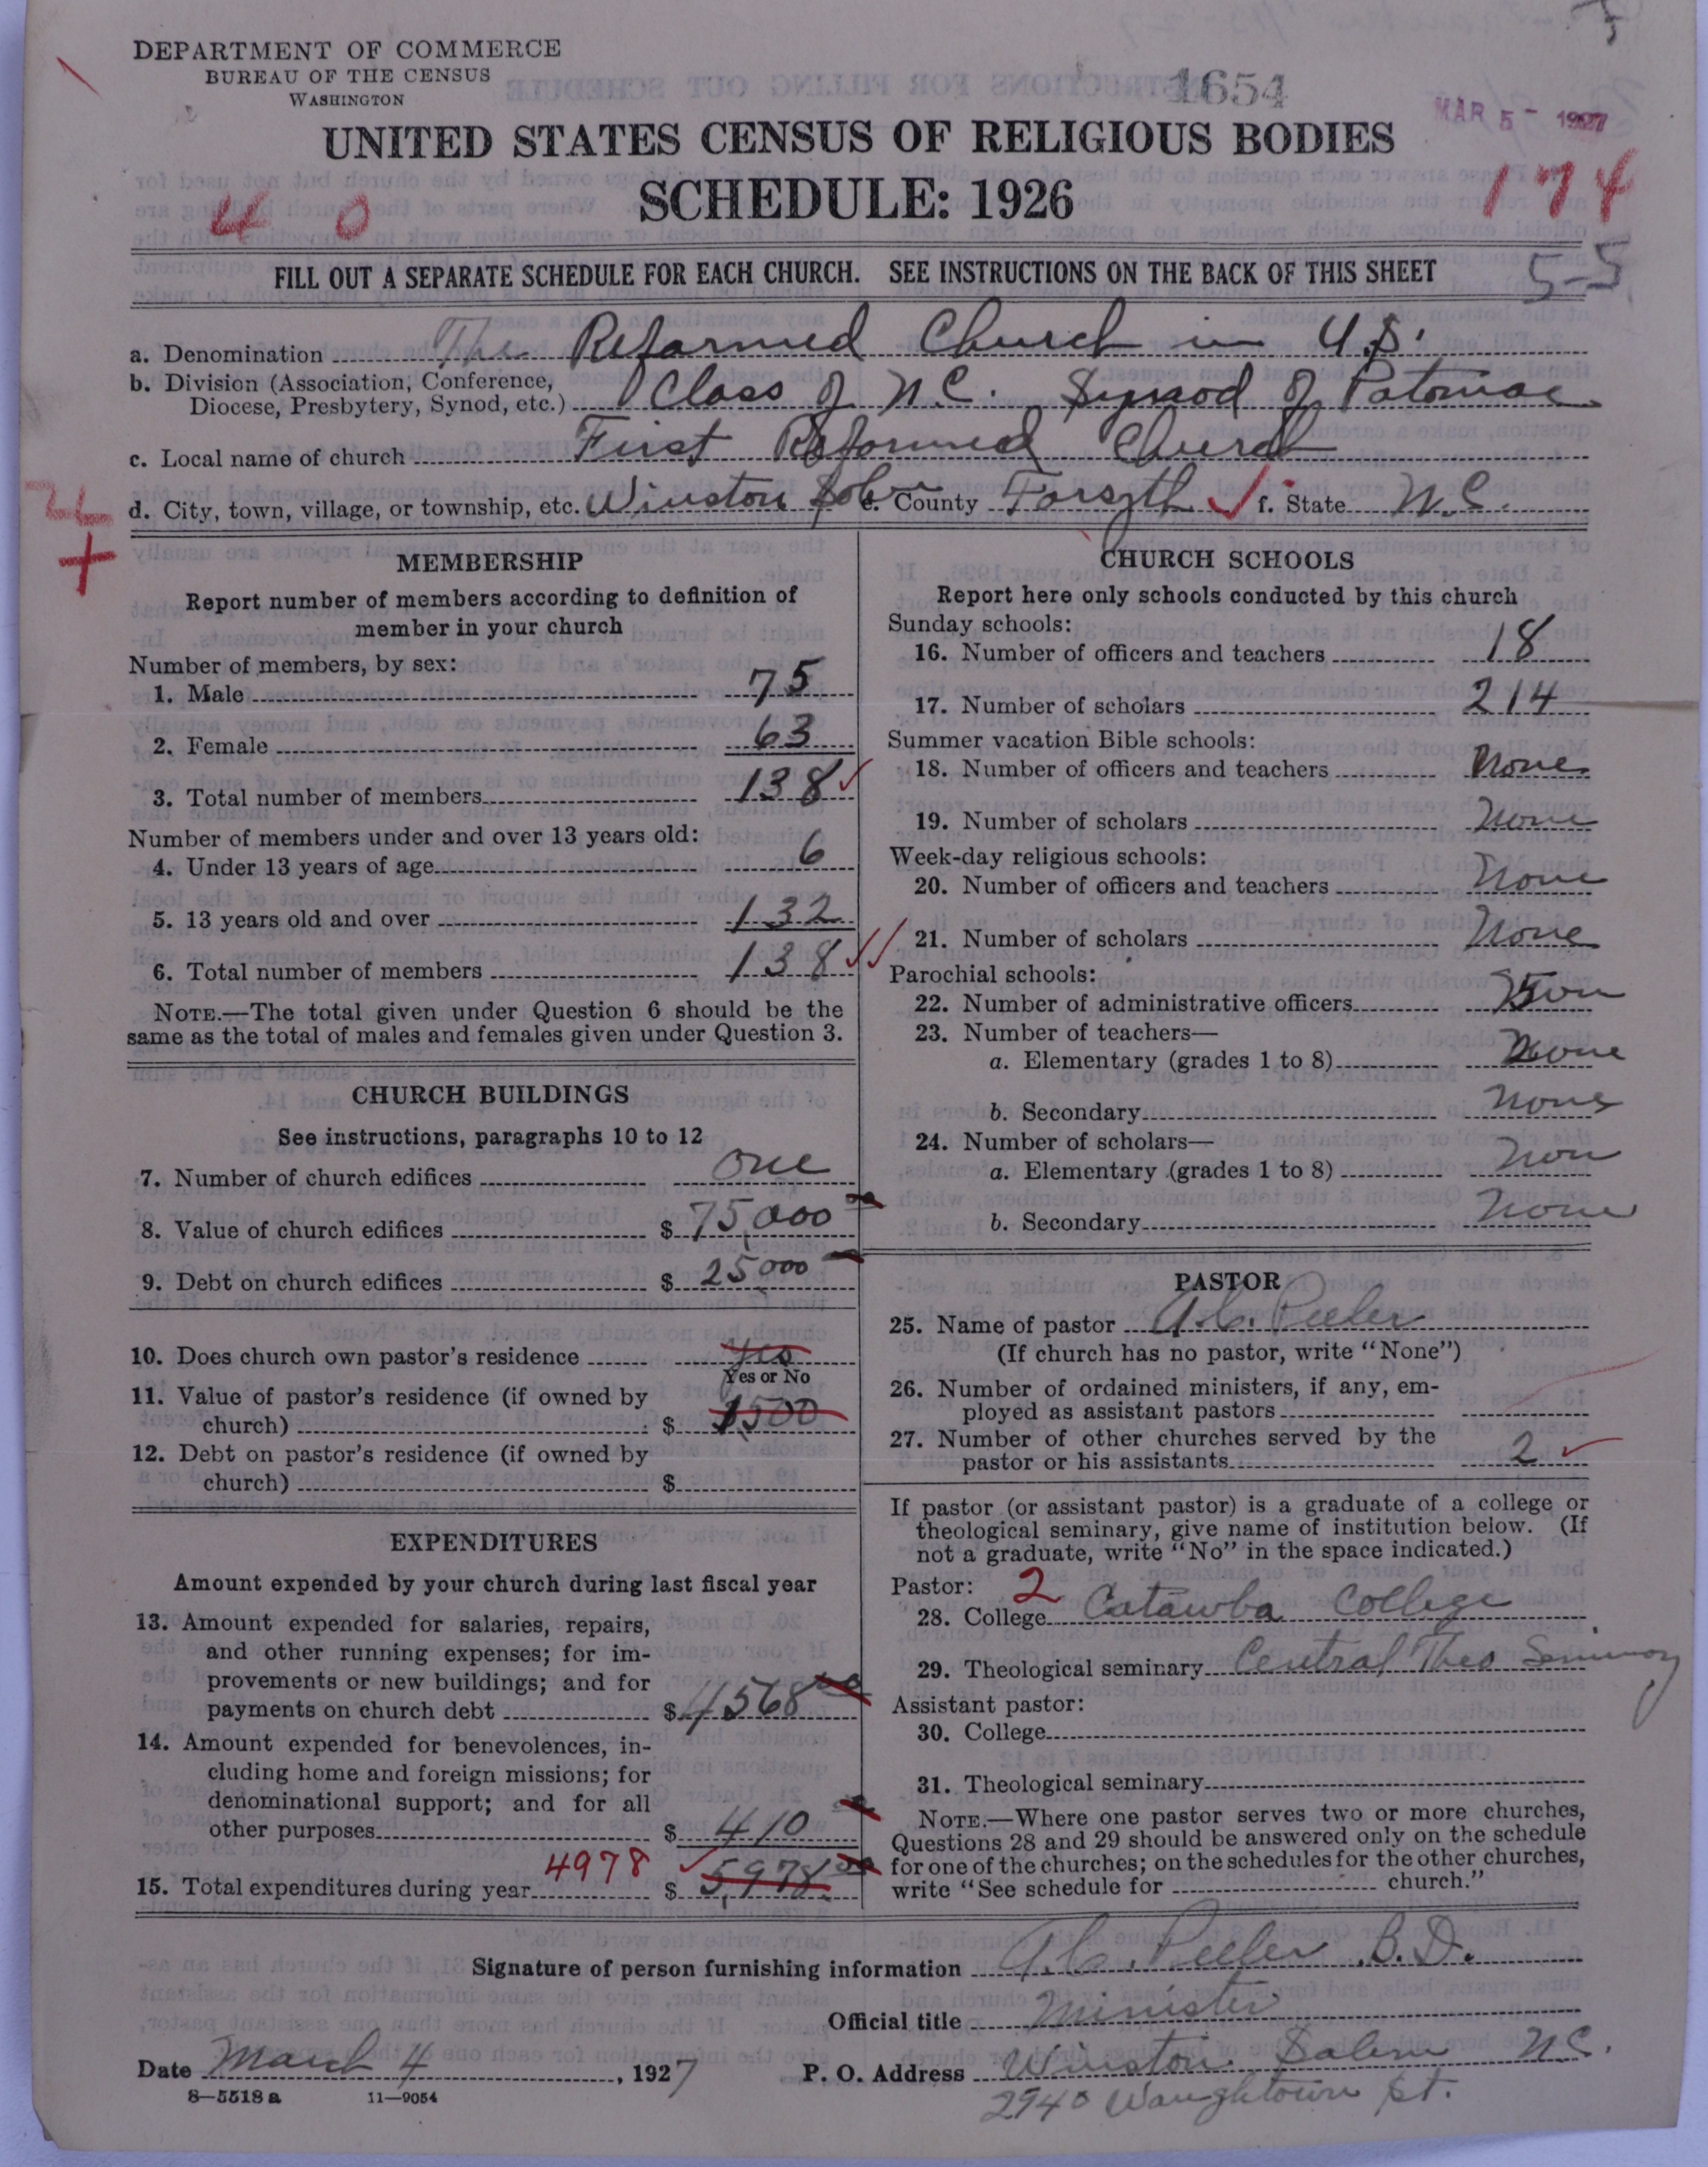 DEPARTMENT OF COMMERCE
BUREAU OF THE CENSUS
WASHINGTON
1654
MAR 5 - 1927
UNITED STATES CENSUS OF RELIGIOUS BODIES
SCHEDULE: 1926
4 0
174
FILL OUT A SEPARATE SCHEDULE FOR EACH CHURCH. SEE INSTRUCTIONS ON THE BACK OF THIS SHEET
5-5
a. Denomination The Reformed Church in U.S.
b. Division (Association, Conference,
Diocese, Presbytery, Synod, etc.) Class of N.C. Synod of Potomac
c. Local name of church First Reformed Church
d. City, town, village, or township, etc. Winston e. County Forsyth f. State N.C.
MEMBERSHIP
Report number of members according to definition of
member in your church
Number of members, by sex:
1. Male 75
2. Female 63
3. Total number of members 138
Number of members under and over 13 years old:
4. Under 13 years of age 6
5. 13 years old and over 132
6. Total number of members 138
NOTE.—The total given under Question 6 should be the
same as the total of males and females given under Question 3.
CHURCH BUILDINGS
See instructions, paragraphs 10 to 12
7. Number of church edifices one
8. Value of church edifices $ 75,000
9. Debt on church edifices $ 25,000
10. Does church own pastor's residence yes
Yes or No
11. Value of pastor's residence (if owned by
church) $ 1500
12. Debt on pastor's residence (if owned by
church) $
EXPENDITURES
Amount expended by your church during last fiscal year
13. Amount expended for salaries, repairs,
and other running expenses; for im-
provements or new buildings; and for
payments on church debt $ 4568
14. Amount expended for benevolences, in-
cluding home and foreign missions; for
denominational support; and for all
other purposes $ 410
15. Total expenditures during year 4978 $ 5,978
CHURCH SCHOOLS
Report here only schools conducted by this church
Sunday schools:
16. Number of officers and teachers 18
17. Number of scholars 214
Summer vacation Bible schools:
18. Number of officers and teachers None
19. Number of scholars None
Week-day religious schools:
20. Number of officers and teachers None
21. Number of scholars None
Parochial schools:
22. Number of administrative officers
23. Number of teachers—
a. Elementary (grades 1 to 8) None
b. Secondary None
24. Number of scholars—
a. Elementary (grades 1 to 8) Non
b. Secondary None
PASTOR
25. Name of pastor A.C. Peeler
(If church has no pastor, write "None")
26. Number of ordained ministers, if any, em-
ployed as assistant pastors
27. Number of other churches served by the
pastor or his assistants 2
If pastor (or assistant pastor) is a graduate of a college or
theological seminary, give name of institution below. (If
not a graduate, write "No" in the space indicated.)
Pastor: 2
28. College Catawba College
29. Theological seminary Central Theo Seminary
Assistant pastor:
30. College
31. Theological seminary
NOTE.—Where one pastor serves two or more churches,
Questions 28 and 29 should be answered only on the schedule
for one of the churches; on the schedules for the other churches,
write "See schedule for church."
Signature of person furnishing information A.C. Peeler B.D.
Official title Minister
Date March 4, 1927 P. O. Address Winston Salem N.C.
2940 Waughtown St.
8—5518 a 11—9054